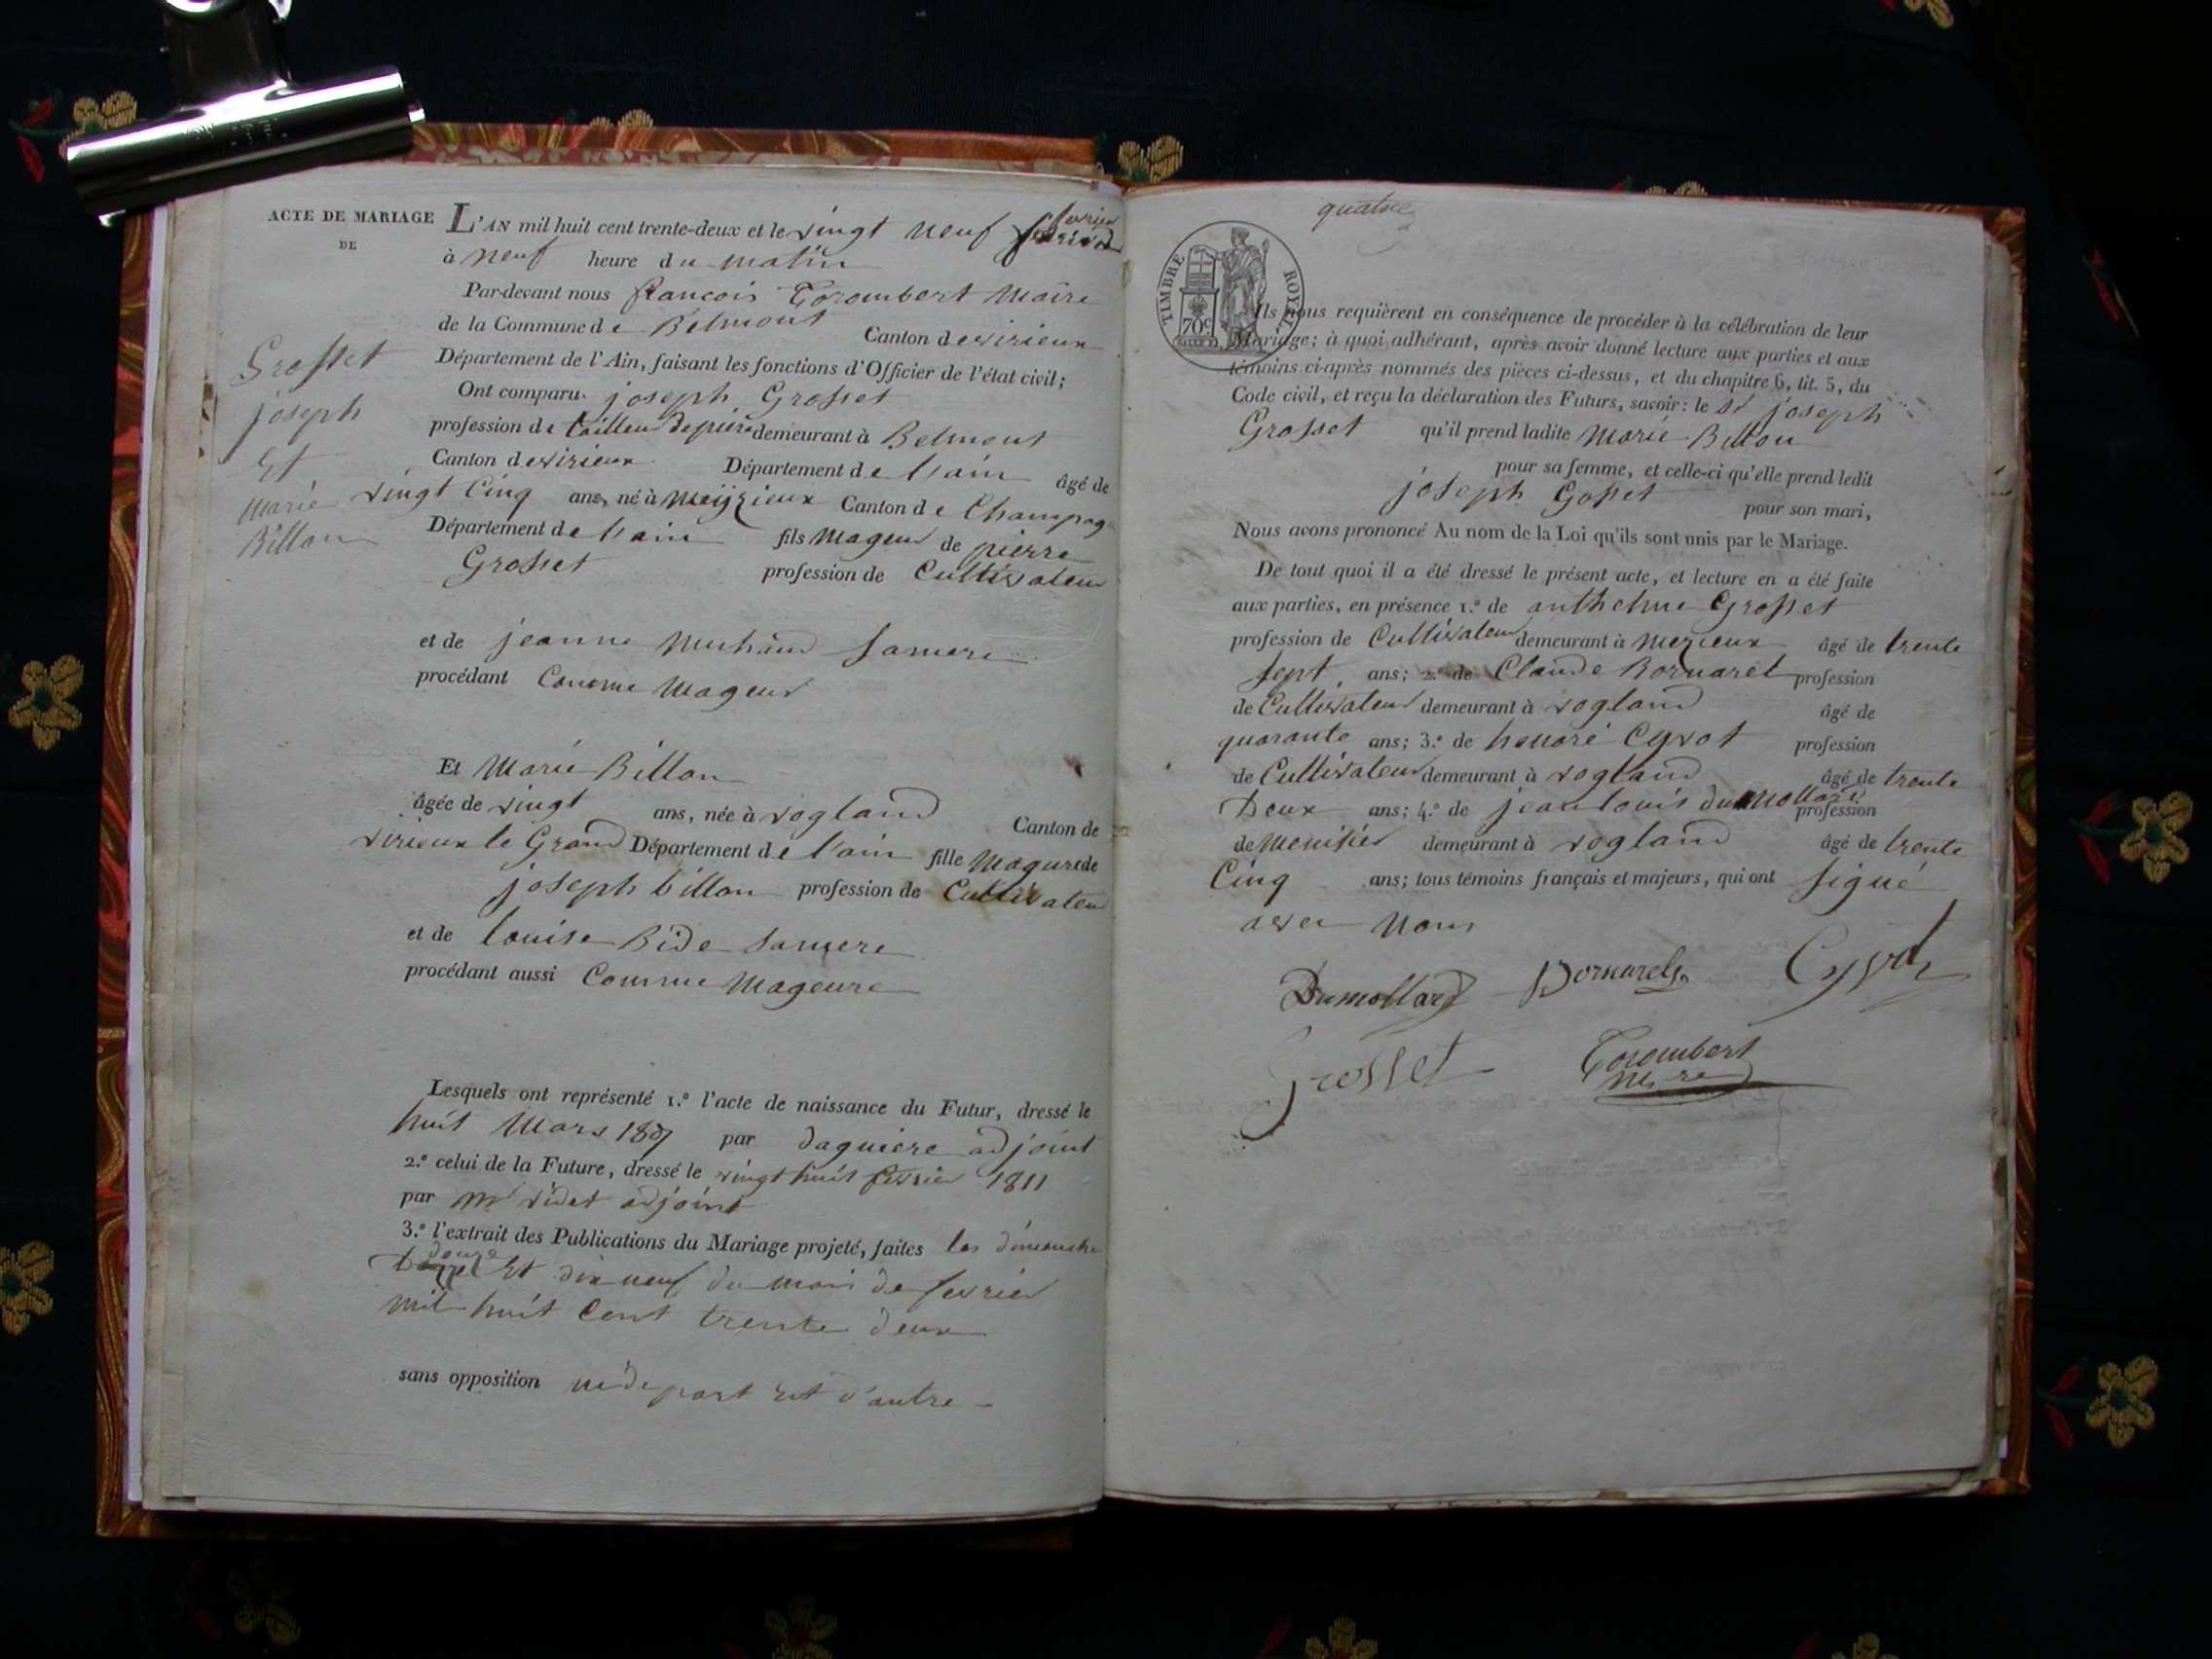 ACTE DE MARIAGE
DE
Grosset
joseph
Et
Marie
Billon
L'AN mil huit cent trente-deux et le vingt neuf fevrier
à neuf heure du matin
Par-devant nous francois Torombert Maire
de la Commune de Belmont Canton de virieux
Département de l'Ain, faisant les fonctions d'Officier de l'état civil;
Ont comparu joseph Grosset
profession de tailleur de piere demeurant à Belmont
Canton de virieux Département de l'ain âgé de
vingt Cinq ans, né à Meyzieux Canton de Champagne
Département de l'ain fils Mageur de pierre
Grosset profession de Cultivateur
et de jeanne samere
procédant Comme Mageur
Et Marie Billon
âgée de vingt ans, née à vogland Canton de
virieux le Grand Département de l'ain fille Magure de
joseph billon profession de Cultivateur
et de Louise Bide samere
procédant aussi Comme Mageure
Lesquels ont représenté 1.º l'acte de naissance du Futur, dressé le
huit Mars 1807 par daguiere adjoint
2.º celui de la Future, dressé le vingt huit fevrier 1811
par mr videt adjoint
3.º l'extrait des Publications du Mariage projeté, faites les dimenche
douze Et dix neuf du mois de fevrier
mil huit Cent trente deux
sans opposition ni de part Et d'autre
quatre
TIMBRE ROYAL
70c
Ils nous requièrent en conséquence de procéder à la célébration de leur
Mariage; à quoi adhérant, après avoir donné lecture aux parties et aux
témoins ci-après nommés des pièces ci-dessus, et du chapitre 6, tit. 5, du
Code civil, et reçu la déclaration des Futurs, savoir: le Sr joseph
Grosset qu'il prend ladite Marie Billon
pour sa femme, et celle-ci qu'elle prend ledit
joseph Gosset pour son mari,
Nous avons prononcé Au nom de la Loi qu'ils sont unis par le Mariage.
De tout quoi il a été dressé le présent acte, et lecture en a été faite
aux parties, en présence 1.º de anthelme Grosset
profession de Cultivateur demeurant à Mezieux âgé de trente
sept ans; 2.º de Claude Bornarel profession
de Cultivateur demeurant à vogland âgé de
quarante ans; 3.º de honoré Cyvot profession
de Cultivateur demeurant à vogland âgé de trente
Deux ans; 4.º de jean louis dumollard profession
de Menisier demeurant à vogland âgé de trente
Cinq ans; tous témoins français et majeurs, qui ont signé
avec Nous
Dumollard Bornarel Cyvot
Grosset Torombert
Mire